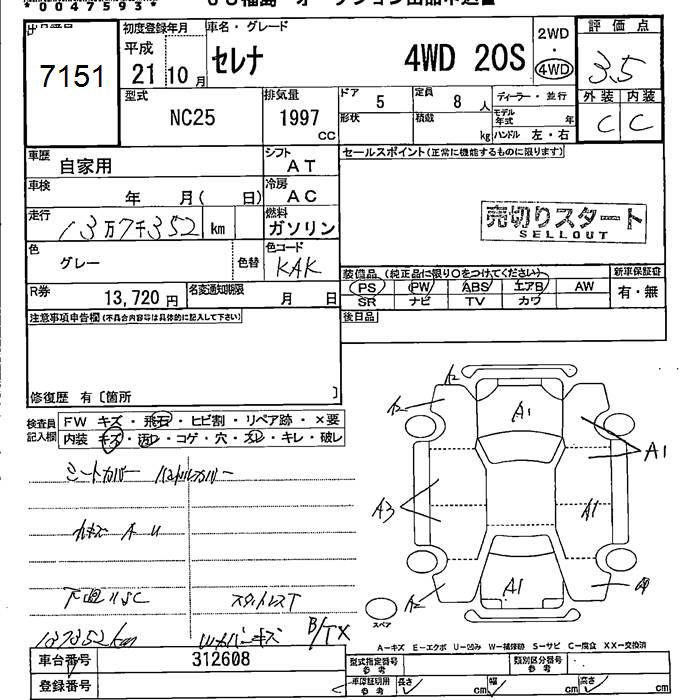 *0047593*
初度登録年月 車名・グレード
評価点
7151
平成
21 10 月
セレナ 4WD 20S
2WD
・
4WD
3.5
型式
NC25
排気量
1997
cc
ドア 5
定員 8 人
ディーラー・並行
形状
積載
kg
モデル年式 年
ハンドル 左・右
外装 内装
C C
車歴 自家用
シフト AT
セールスポイント(正常に機能するものに限ります)
車検 年 月( 日)
冷房 AC
走行 13万7千352 km
燃料 ガソリン
売切りスタート
SELLOUT
色 グレー
色替
色コード KAK
装備品(純正品に限り○をつけてください)
新車保証書
PS PW ABS エアB AW
有・無
SR ナビ TV カワ
R券 13,720 円
名変通知期限 月 日
後日品
注意事項申告欄(不具合内容等は具体的に記入して下さい)
修復歴 有〔箇所 〕
検査員記入欄
FW キズ・飛石・ヒビ割・リペア跡・×要
内装 キズ・汚レ・コゲ・穴・スレ・キレ・破レ
シートカバー ハンドルカバー
A U
スタッドレスT
137352km
B/TX
A2
A2
A1
A1
A3
A1
A2
A1
スペア
A-キズ E-エクボ U-凹み W-補修跡 S-サビ C-腐食 XX-交換済
車台番号 312608
登録番号
型式指定番号
参考
類別区分番号
参考
車庫証明用
参考
長さ cm
幅 cm
高さ cm